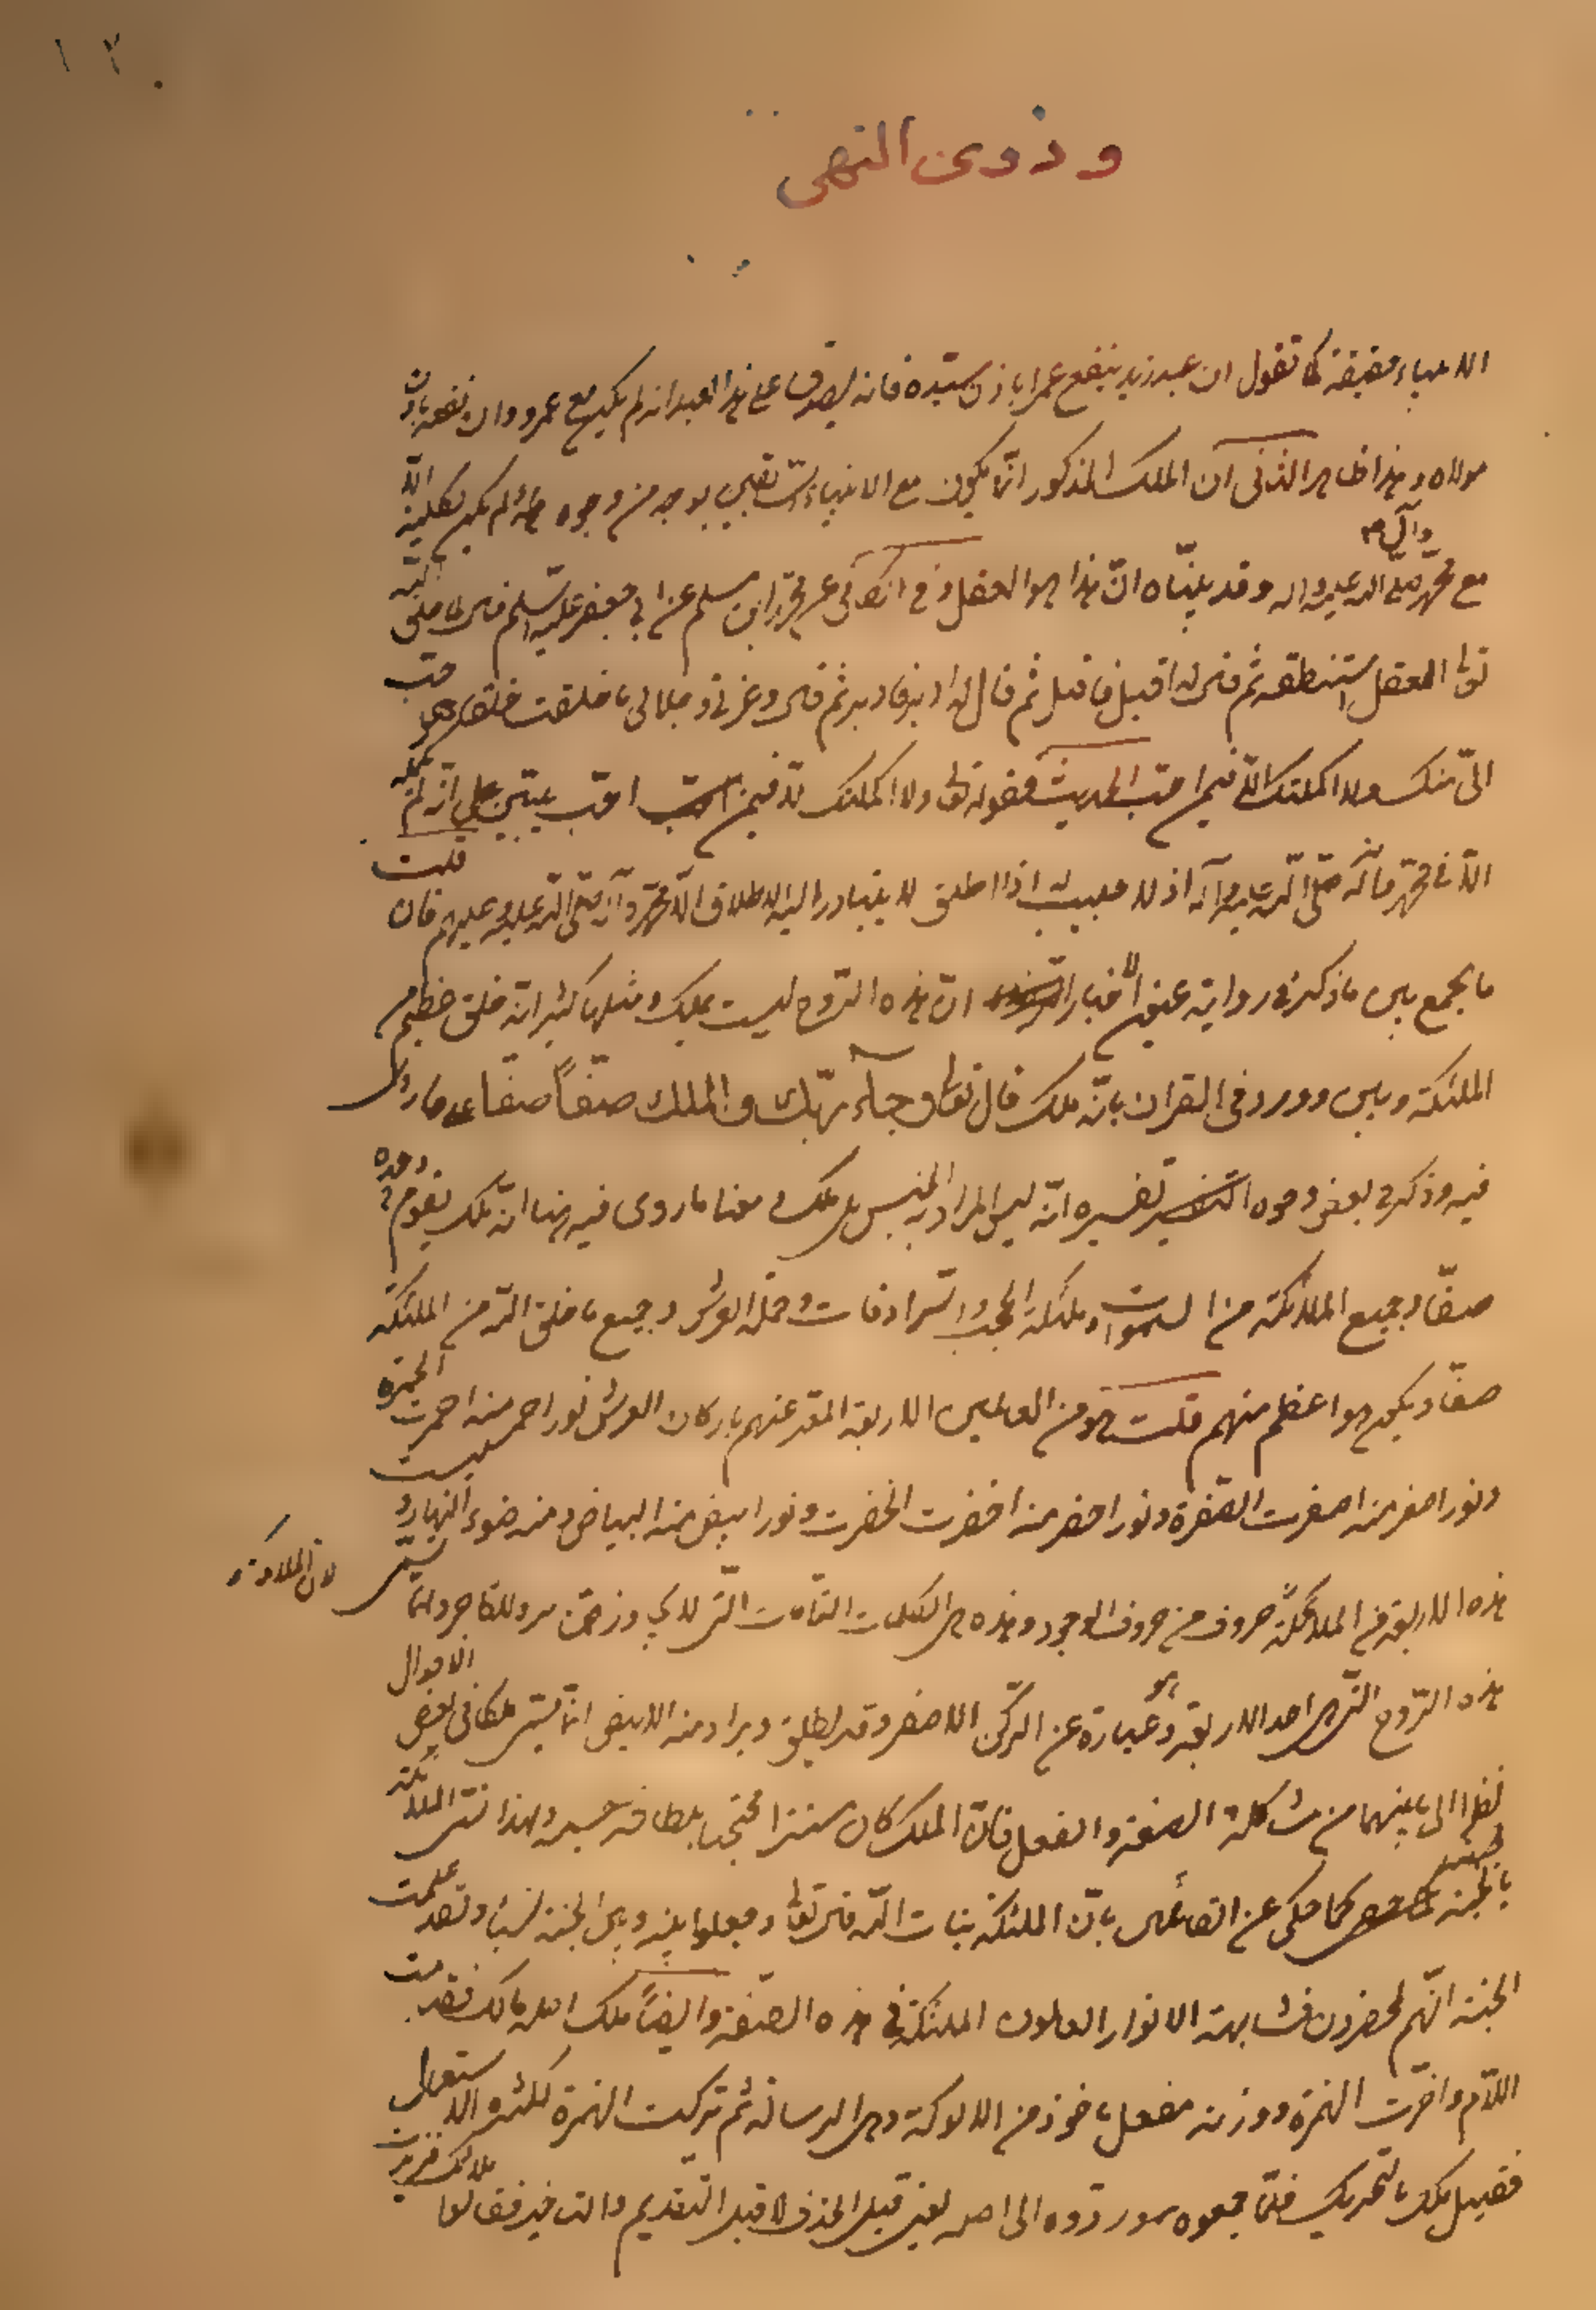 ١٢
وذوى النهى
الانبياء حقيقة كما تقول ان عبد زيد ينفع عمرا باذن سيده فانه يصدق على هذا العبد انه لم يكن مع عمرو وان نفعه باذن
مولاه وهذا ظاهر الثانى ان الملك المذكور انما يكون مع الانبياء بوجه من وجوهه لم يكن بكليته الا
مع محمد صلى الله عليه واله وقد بينّاه انّ هذا هو العقل وفى الكافى عن محمد ابن مسلم عن ابى جعفر عليه السلم قال لما خلق الله
واله ص
تعالى العقل استنطقه ثم قال له اقبل فاقبل ثم قال له ادبر فادبر ثم قال وعزتى وجلالى ما خلقت خلقا هو احب
الىّ منك ولا اكملتك الا فيمن احب الحديث فقوله تعالى ولا اكملتك الا فيمن احب على انه لم يكمله
الا فى محمد وآله صلى الله عليه وآله اذ لا حبيب له اذا اطلق لا يتبادر اليه الاطلاق الا محمد وآله صلى الله عليه وعليهم فان قلت
ما يجمع بين ما ذكر فى رواية بعض الاخبار انّ هذه الروح ليست بملك ومثلها كثير انه خلق اعظم من
الملئكة وبين وورد فى القران بانّه ملك قال تعالى وجآء ربّك والملك صفّاً صفّا على ما روى
فيه وذكر فى بعض وجوه تفسيره انّه ليس المراد به الجنس بل ملك ومعنا ما روى فيه هنا انّه ملك يقوم وحده
صفّا وجميع الملائكة من السموات وملئكة الحجب والسرادقات وحملة العرش وجميع ما خلق الله من الملئكة
صفّا ويكون هو اعظم منهم قلت هو من العالين الاربعة المعبّر عنهم باركان العرش نور احمر منه احمرت الحمرة
ونور اصفر منه اصفرت الصفرة ونور اخضر منه اخضرت الخضرة ونور ابيض منه البياض ومنه ضوء النهار وليست
هذه الاربعة من الملائكة حروف من حروف الوجود وهذه هى الكلمات التامّات الّتى لا يجاوزهنّ بر ولا فاجر وانما تسمّى
لان الملائكة
هذه الرّوح التّى هى احد الاربعة وهو عبارة عن الركن الاصفر وقد يطلق ويراد منه الابيض انّما يسمّى ملكا فى بعض الاحوال
نظرا الى ما بينهما من مشاكلة الصفة والفعل فانّ الملك كان مستترا محتجبا بلطافة جسمه ولهذا تسمّى الملائكة
بالجنة كما حكى عن القائلين بانّ الملئكة بنات اللّه قال تعالى وجعلوا بينه وبين الجنة نسبا ولقد علمت
الجنة انّهم لمحضرون فشابهة الانوار العالون الملئكة فى هذه الصّفة وايضاً ملك اصله مالك فقدمت
اللام واخرت الهمزة ووزنه مفعل ماخوذ من الالوكة وهى الرسالة ثم تركت الهمزة لكثرة الاستعمال
فقيل ملك بالتحريك فلمّا جمعوه ردّوه الى اصله يعنى قبل الحذف لا قبل التقديم والتاخير فقالوا ملائك فزيدت